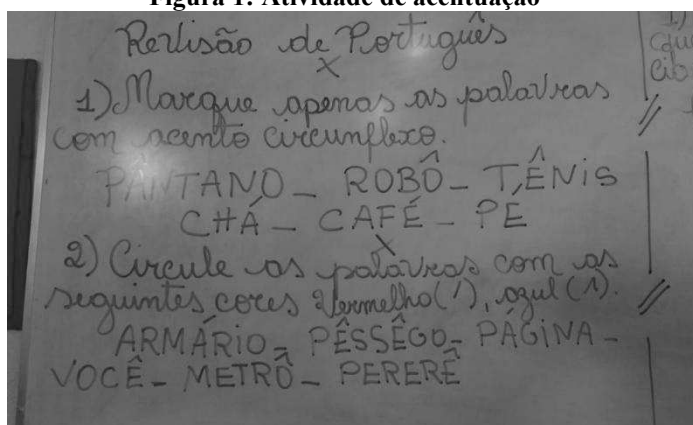 Figura 1: Atividade de acentuação
Revisão de Português
x
1) Marque apenas as palavras
com acento circunflexo.
PÂNTANO - ROBÔ - TÊNIS
CHÁ - CAFÉ - PE
x
2) Circule as palavras com as
seguintes cores Vermelho(/), azul (^).
ARMÁRIO - PÊSSÊGO - PÁGINA -
VOCÊ - METRÔ - PERERÊ
1)
cib